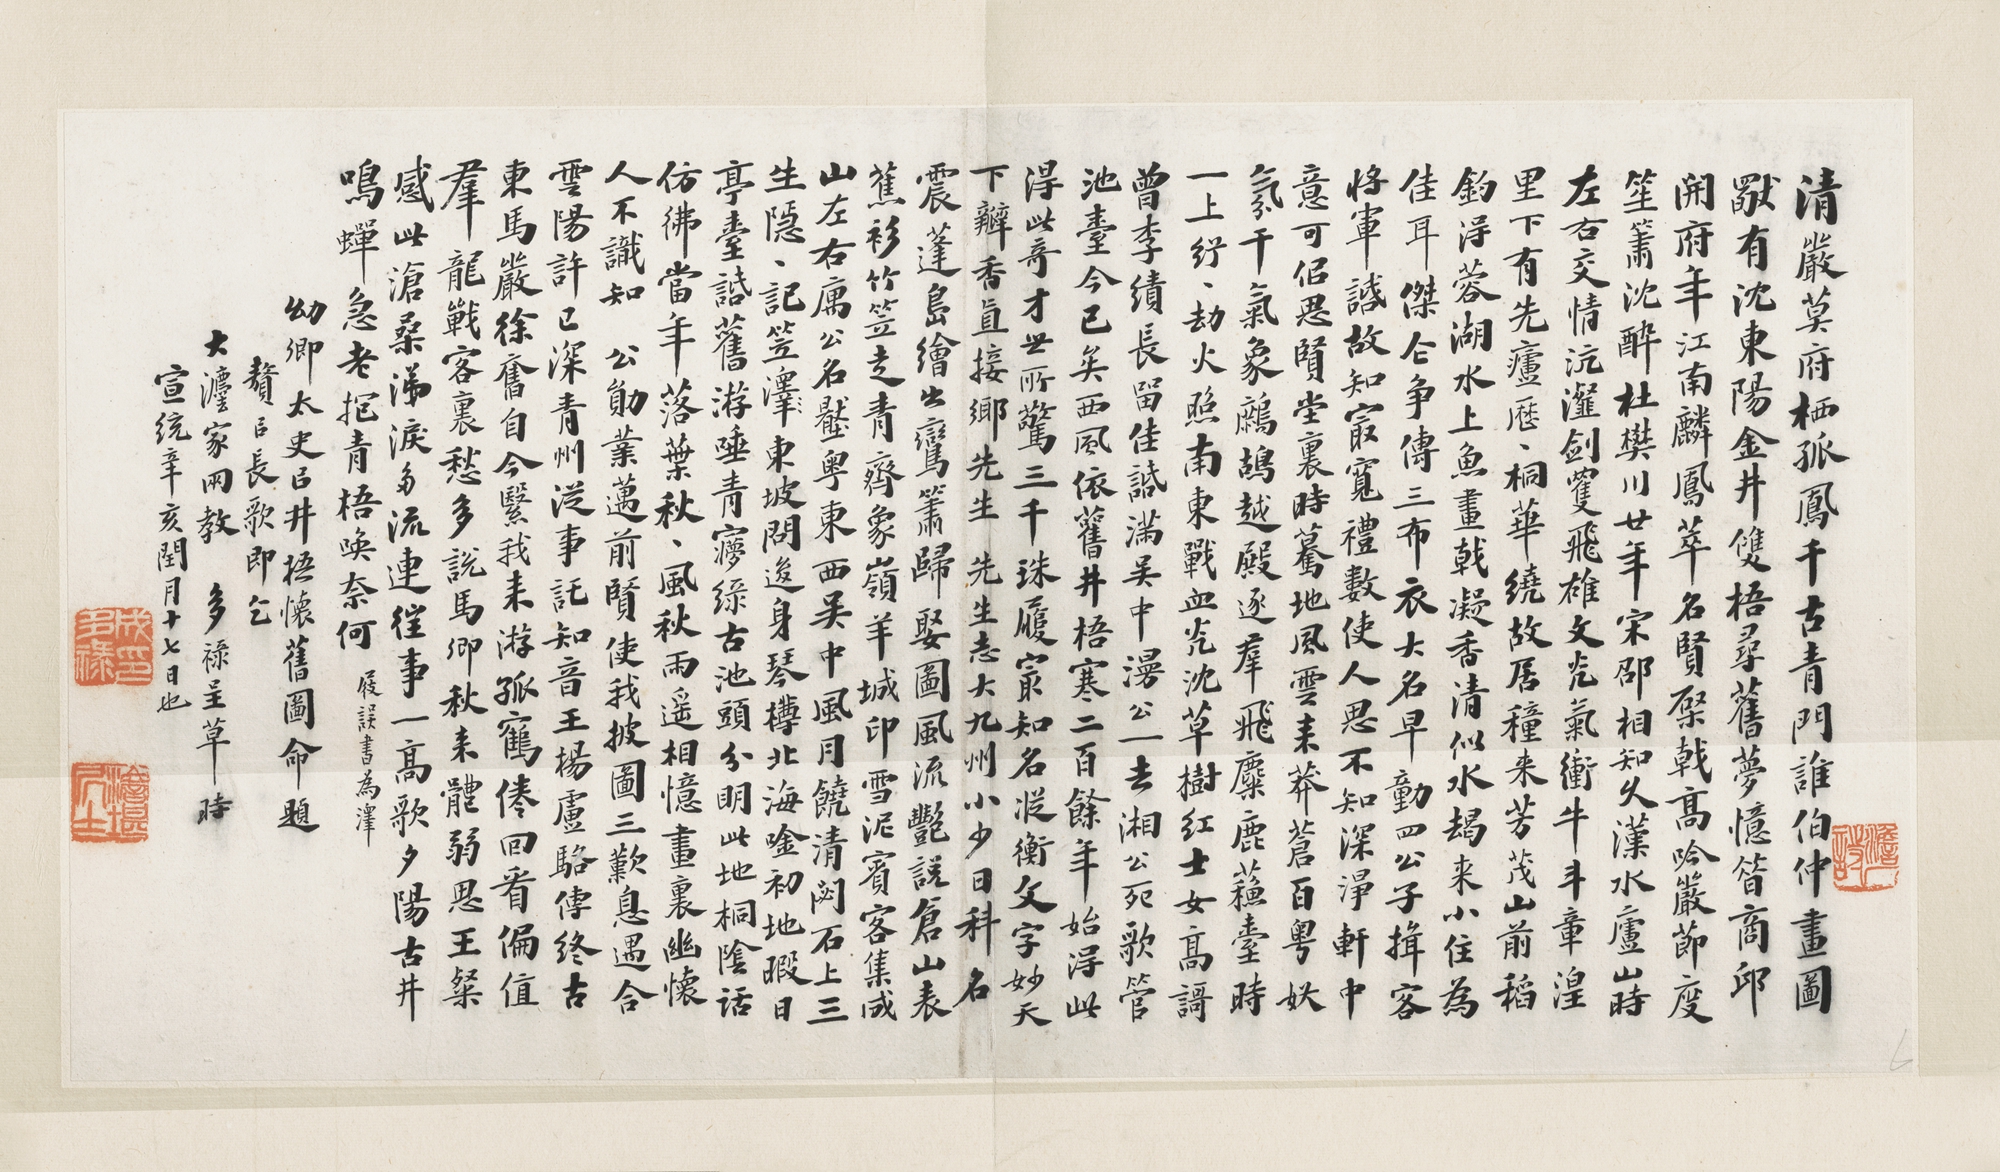 清嚴莫府栖孤鳳千古青門誰伯仲畫圖
猷有沈東陽金井雙梧尋舊夢憶昝商邱
開府年江南麟鳳萃名賢棨戟高吟嚴節度
笙簫沈醉杜樊川廿年宋邵相知久漢水廬山時
左右交情沆瀣劍雙飛雄文光氣衝牛斗章湟
里下有先廬歷、桐華繞故居穜来芳茂山前稻
釣浔蓉湖水上魚畫戟凝香清似水朅来小住為
佳耳傑仝爭傳三布衣大名早動四公子揖客
將軍誠故知寂寬禮數使人思不知深淨軒中
意可侣思賢堂裏時驀地風雲来莽蒼百粤妖
氛干氣象鷓鴣越殿逐羣飛麋鹿蘓臺時
一上紆、劫火照南東戰血光沈草樹紅士女高謌
曾李績長留佳話滿吴中漫公一去湘公死歌管
池臺今已矣西風依舊井梧寒二百餘年始浔此
淂此奇才世所驚三千珠履寂知名從衡文字妙天
下瓣香直接鄉先生先生志大九州小少日科名
震蓬島繪出鸞簫歸娶圖風流艷說倉山表
蕉衫竹笠走青齊象嶺羊城印雪泥賓客集成
山左右厲公名壓粤東西吴中風月饒清闷石上三
生隱、記笠澤東坡問後身琴樽北海唫初地暇日
亭臺話舊游唾青瘳緑古池頭分明此地桐陰話
仿彿當年落葉秋、風秋雨遥相憶畫裏幽懷
人不識知 公勛業邁前賢使我披圖三歎息遇合
雲陽許已深青州從事託知音王楊盧駱傳終古
東馬嚴徐奮自今繄我来游孤寉倦回看偏值
羣龍戰客裏愁多說馬卿秋来體弱思王粲
感此滄桑涕淚多流連徃事一高歌夕陽古井
鳴蟬急老抱青梧喚奈何 展誤書為澤
幼卿太史以井梧懷舊圖命題
贅以長歌即乞
大灋家兩教 多禄呈草 時
宣統辛亥閏月十七日也
成多禄印
澹堪居士